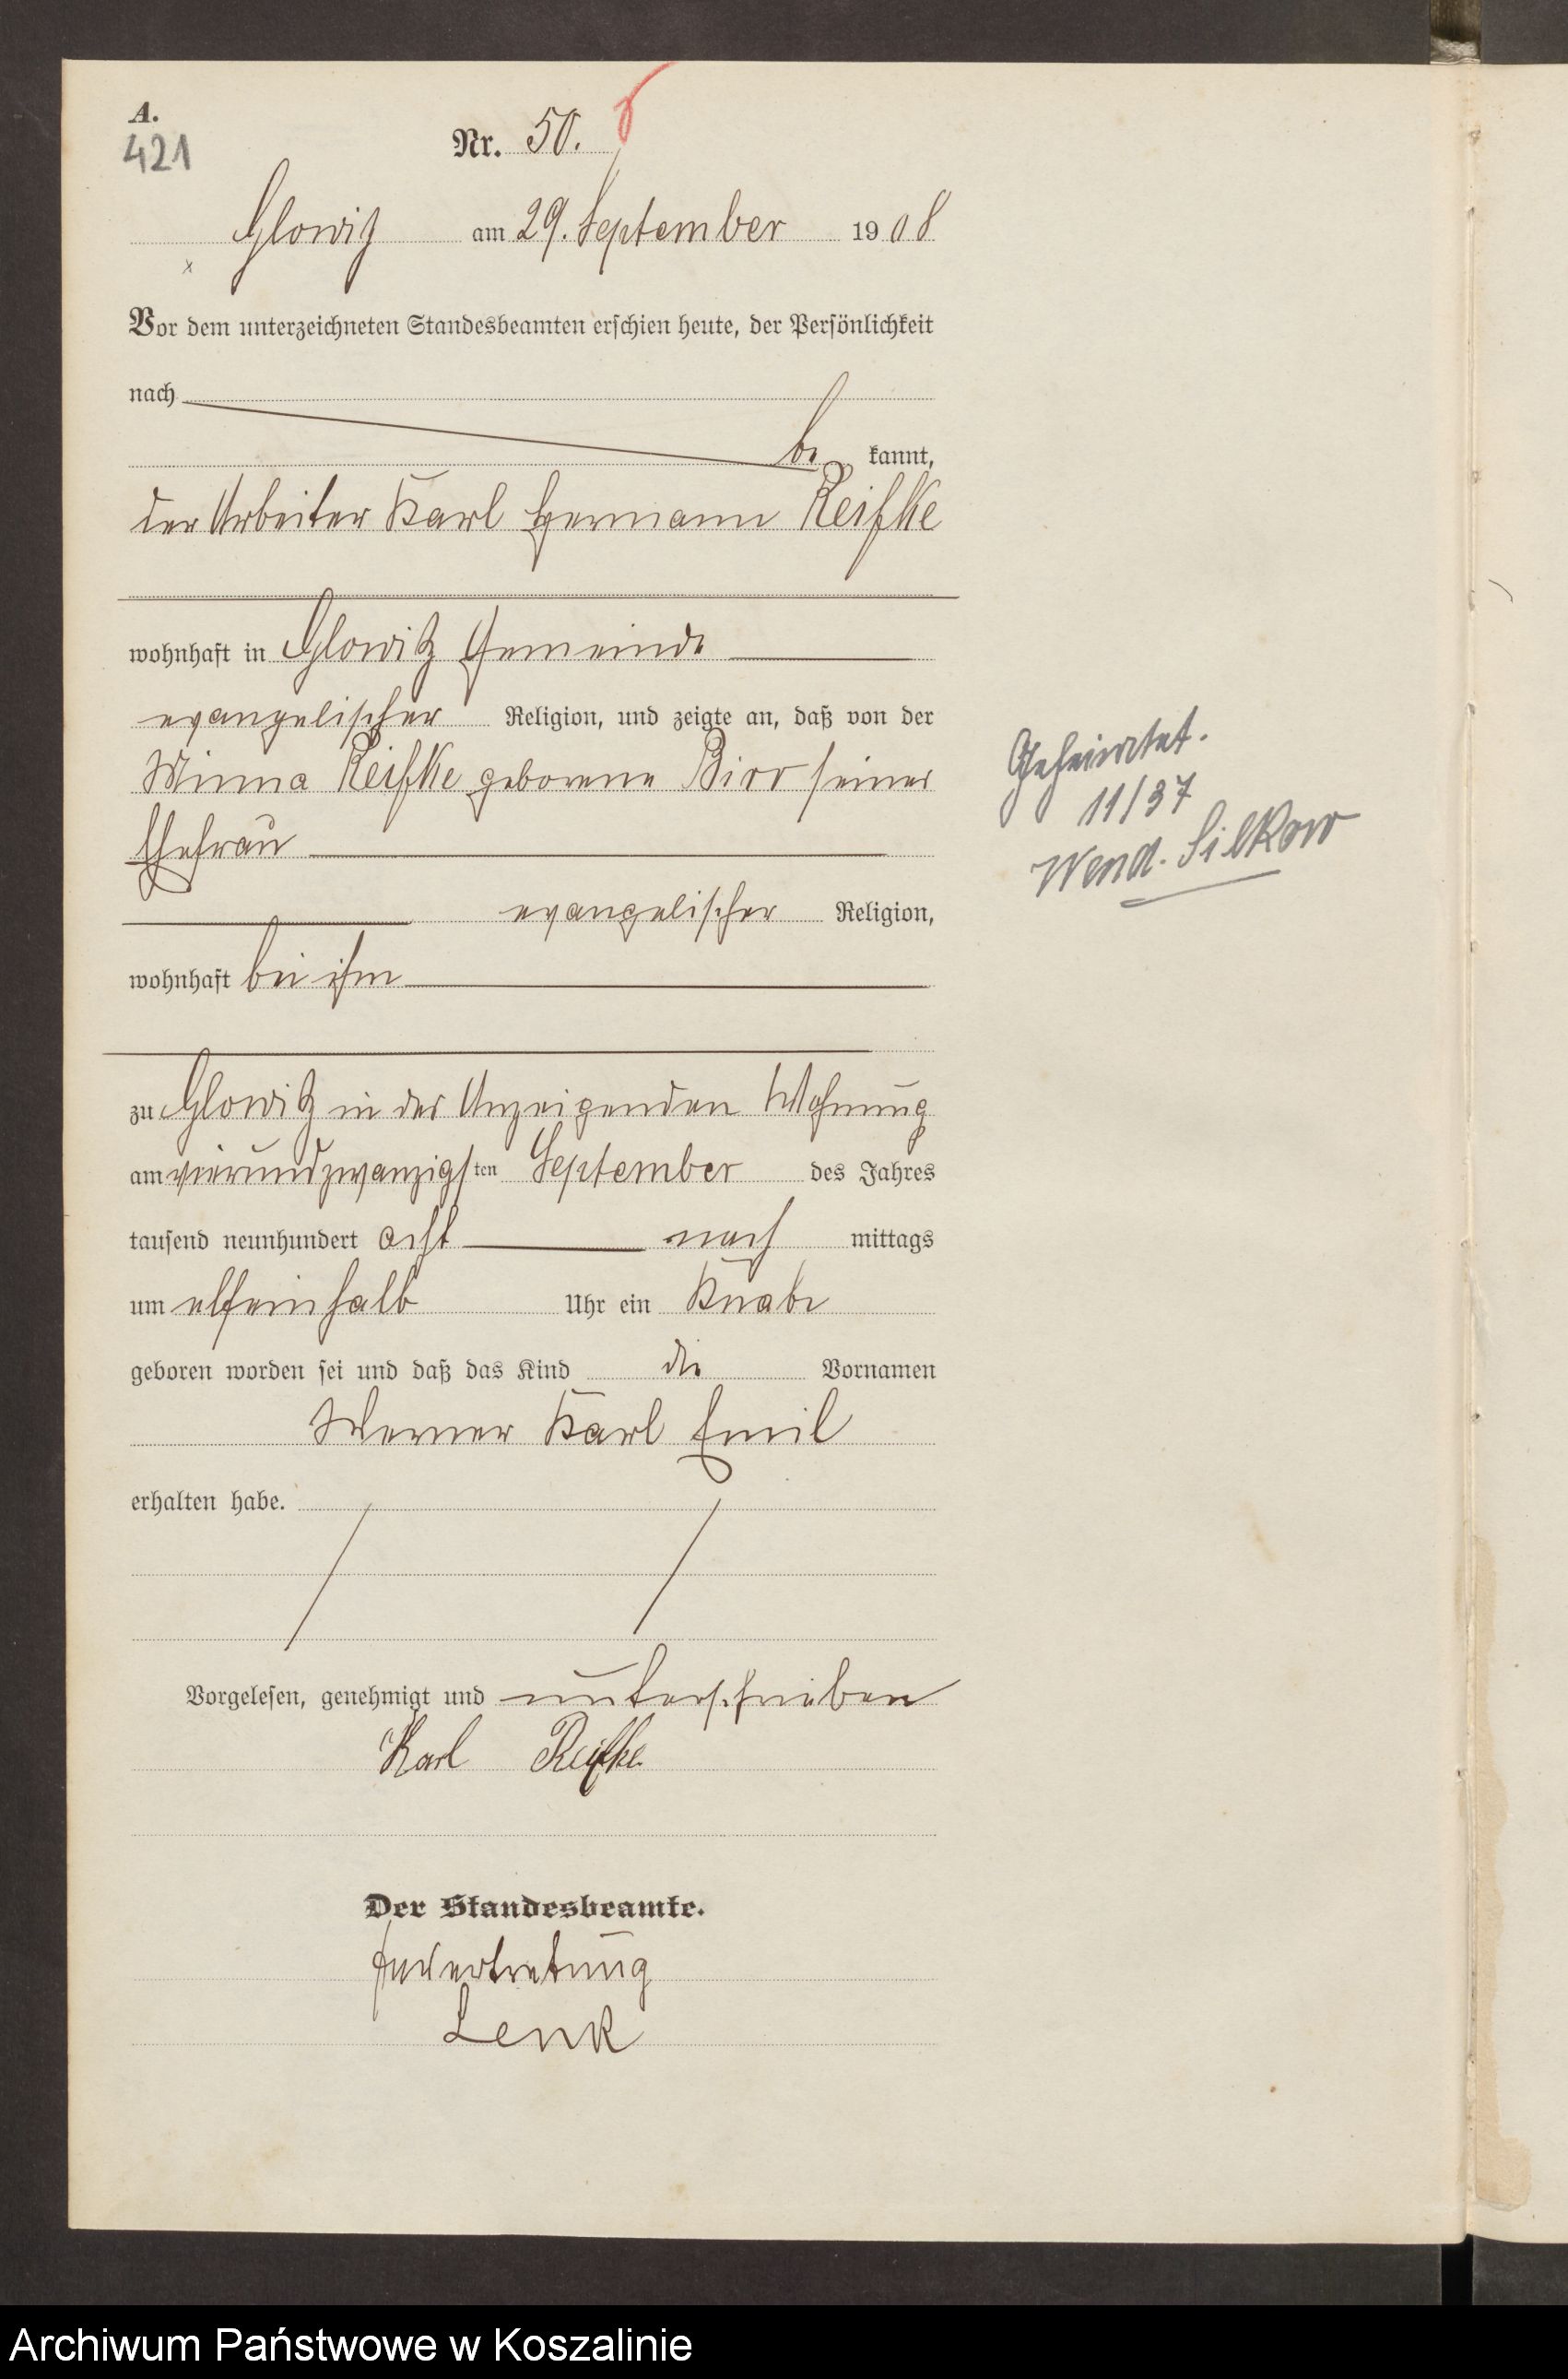 A.
421
Nr. 50.
Glowitz am 29. September 1908
Vor dem unterzeichneten Standesbeamten erschien heute, der Persönlichkeit
nach
be kannt,
der Arbeiter Karl Hermann Reifke
wohnhaft in Glowitz Gemeinde
evangelischer Religion, und zeigte an, daß von der
Minna Reifke geborene seiner
Ehefrau
evangelischer Religion,
wohnhaft bei ihm
zu Glowitz in der Anzeigenden Wohnung
am vierundzwanzigsten September des Jahres
tausend neunhundert acht nach mittags
um elfeinhalb Uhr ein Knabe
geboren worden sei und daß das Kind die Vornamen
Werner Karl Emil
erhalten habe.
Vorgelesen, genehmigt und unterschrieben
Karl Reifke
Der Standesbeamte.
In Vertretung
Lenk
Geheiratet.
11/37
Wend. Silkow
Archiwum Państwowe w Koszalinie